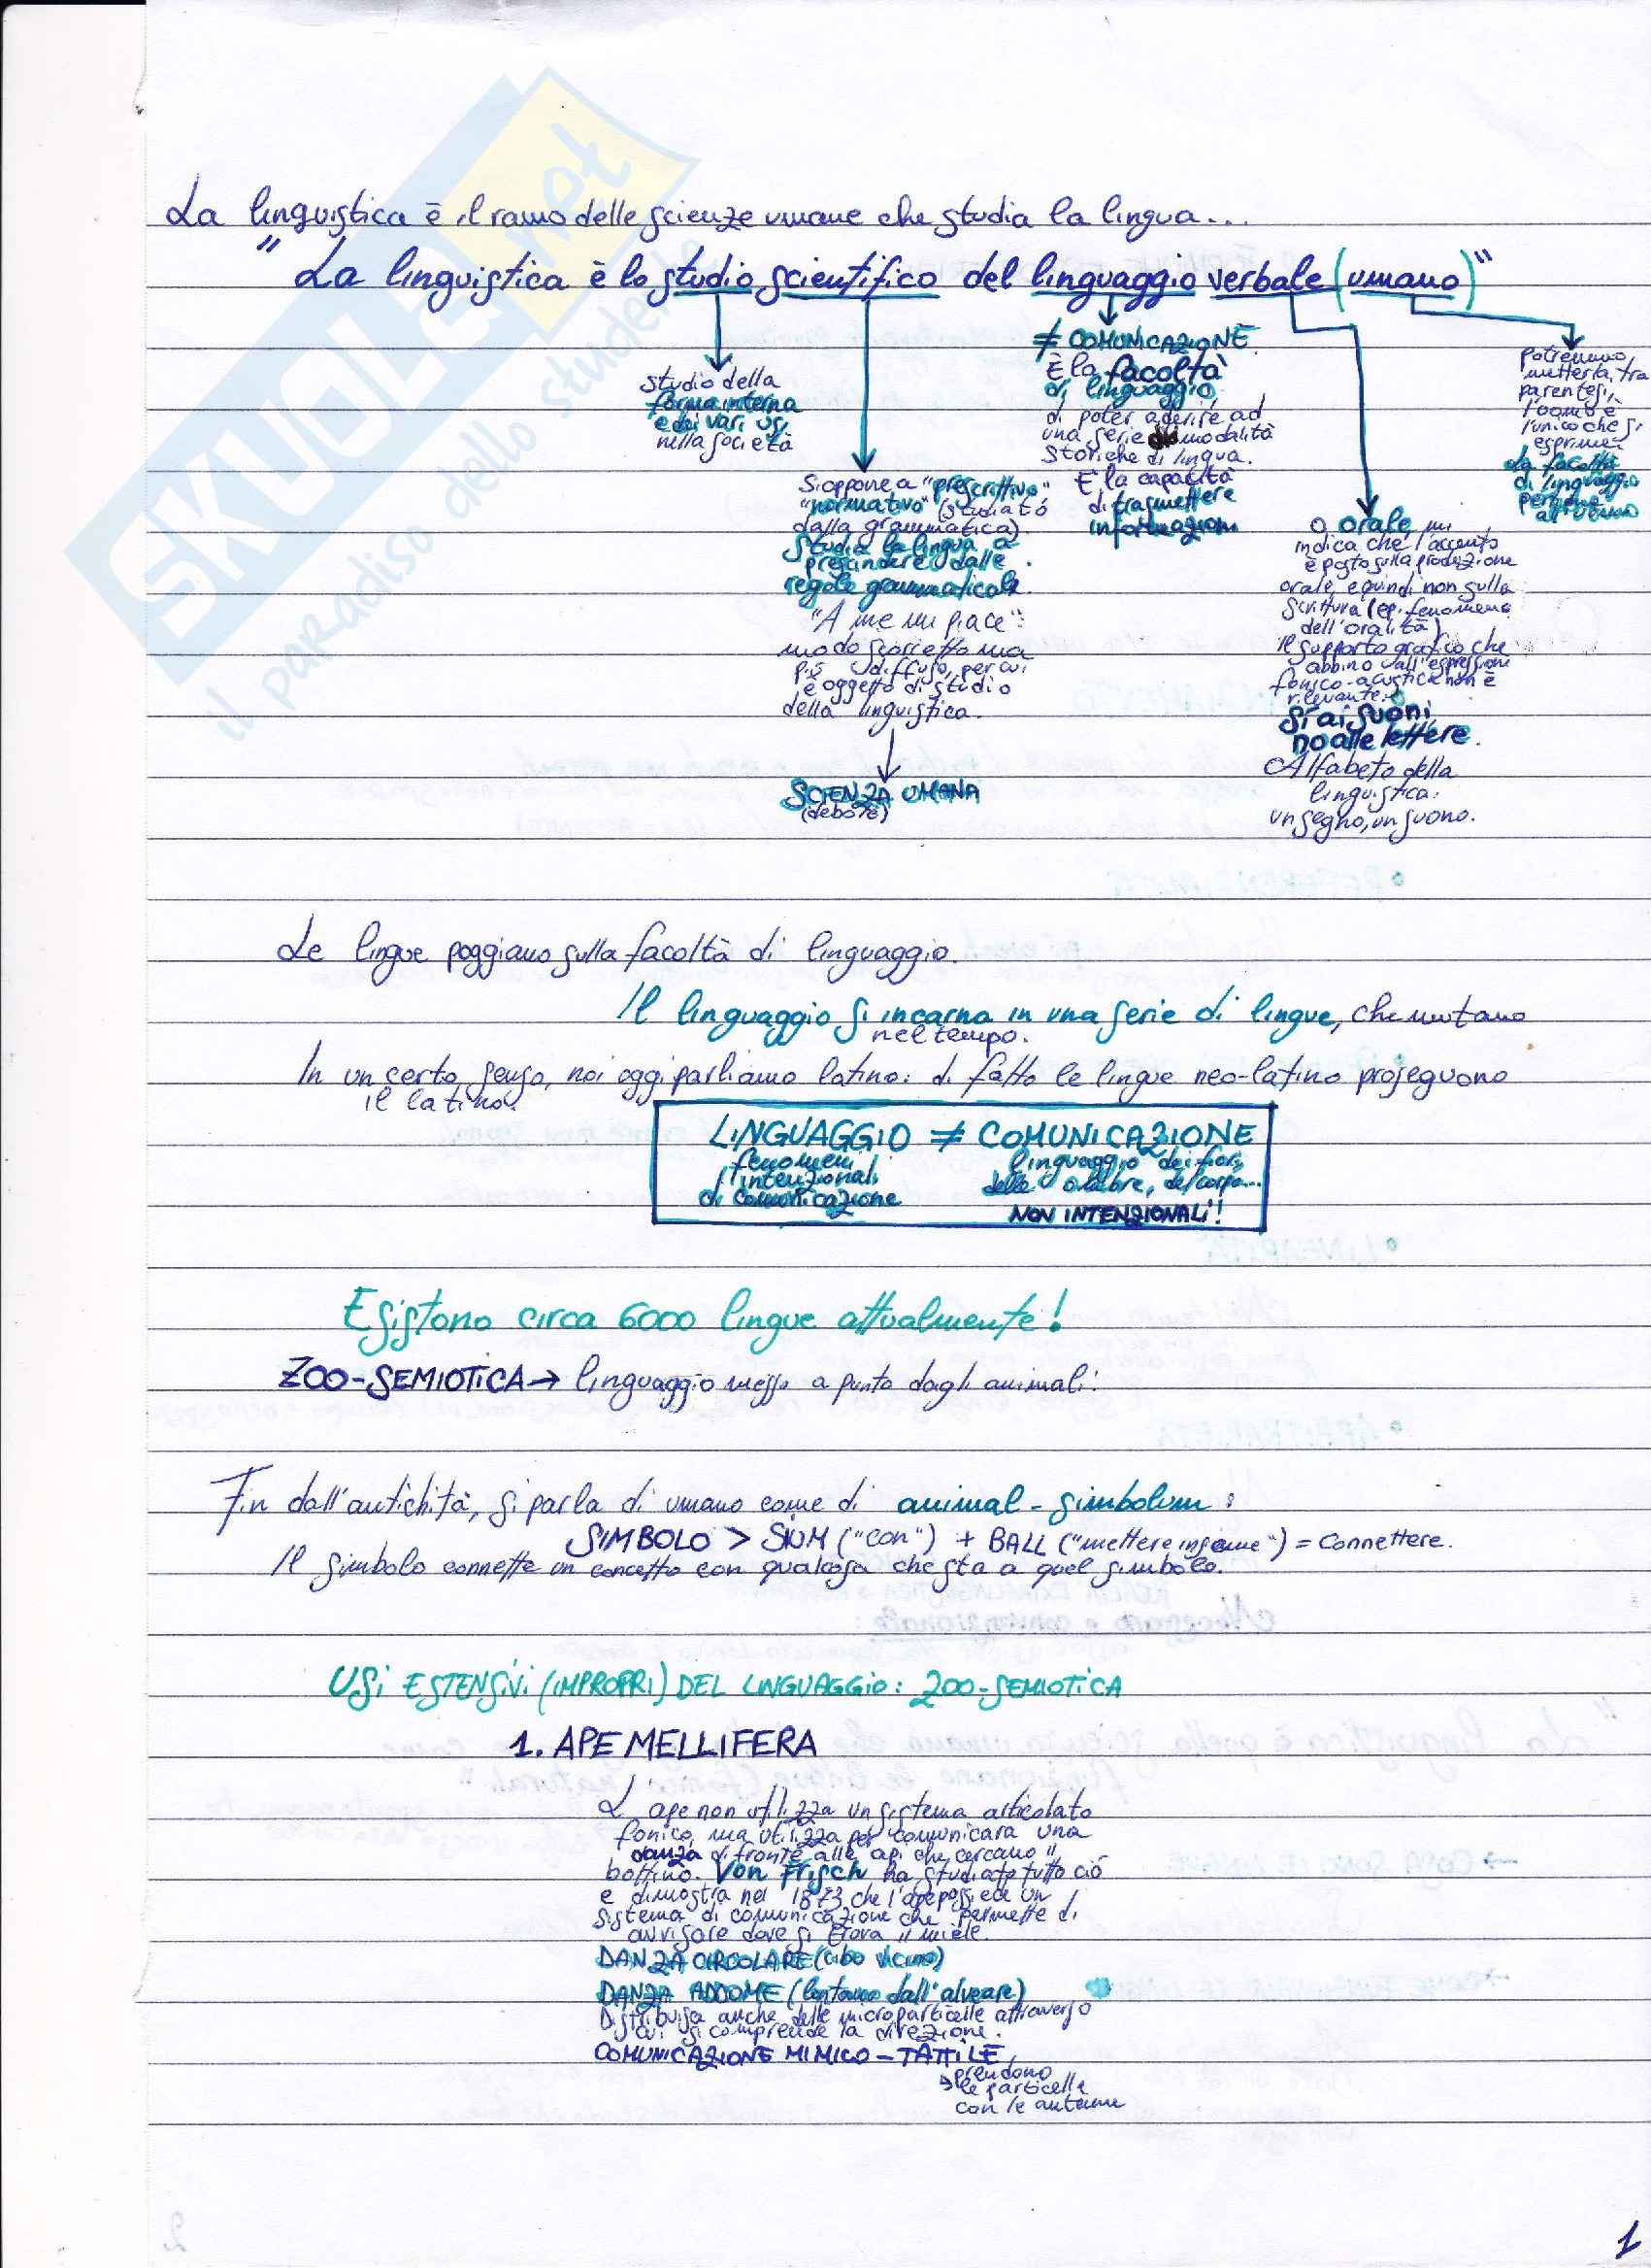 SKUOLA.net
il paradiso dello studente
La linguistica è il ramo delle scienze umane che studia la lingua...
"La linguistica è lo studio scientifico del linguaggio verbale (umano)"
studio della
forma interna
e dei vari usi
nella società
Si oppone a "prescrittivo"
"normativo" (studiato
dalla grammatica)
Studia la lingua a
prescindere dalle
regole grammaticali.
"A me mi piace":
modo scorretto ma
più diffuso, per cui
è oggetto di studio
della linguistica.
SCIENZA UMANA
(debole)
≠ COMUNICAZIONE
È la facoltà
di linguaggio
di poter aderire ad
una serie di modalità
storiche di lingua.
È la capacità
di trasmettere
informazioni
o orale, mi
indica che l'accento
è posto sulla produzione
orale, e quindi non sulla
scrittura (epifenomeno
dell'oralità)
Il supporto grafico che
abbino all'espressione
fonico-acustica non è
rilevante.
Sì ai suoni
no alle lettere.
Alfabeto della
linguistica:
un segno, un suono.
Potremmo
metterla tra
parentesi,
l'uomo è
l'unico che si
esprime
La facoltà
di linguaggio
Le lingue poggiano sulla facoltà di linguaggio.
Il linguaggio si incarna in una serie di lingue, che mutano
nel tempo.
In un certo senso, noi oggi parliamo latino: di fatto le lingue neo-latino proseguono
il latino.
LINGUAGGIO ≠ COMUNICAZIONE
fenomeni linguaggio dei fiori,
intenzionali delle ombre, del corpo...
di comunicazione NON INTENZIONALI!
Esistono circa 6000 lingue attualmente!
ZOO-SEMIOTICA → linguaggio messo a punto dagli animali.
Fin dall'antichità, si parla di umano come di animal-simbolum:
SIMBOLO > SIUM ("con") + BALL ("mettere insieme") = Connettere.
Il simbolo connette un concetto con qualcosa che sta a quel simbolo.
USI ESTENSIVI (IMPROPRI) DEL LINGUAGGIO: ZOO-SEMIOTICA
1. APE MELLIFERA
L'ape non utilizza un sistema articolato
fonico, ma utilizza per comunicare una
danza di fronte alle api che cercano il
bottino. Von Frisch ha studiato tutto ciò
e dimostra nel 1873 che l'ape possiede un
sistema di comunicazione che permette di
avvisare dove si trova il miele.
DANZA CIRCOLARE (cibo vicino)
DANZA ADDOME (lontano dall'alveare)
Distribuisce anche delle microparticelle attraverso
cui si comprende la direzione.
COMUNICAZIONE MIMICO-TATTILE
→ prendono
le particelle
con le antenne
1